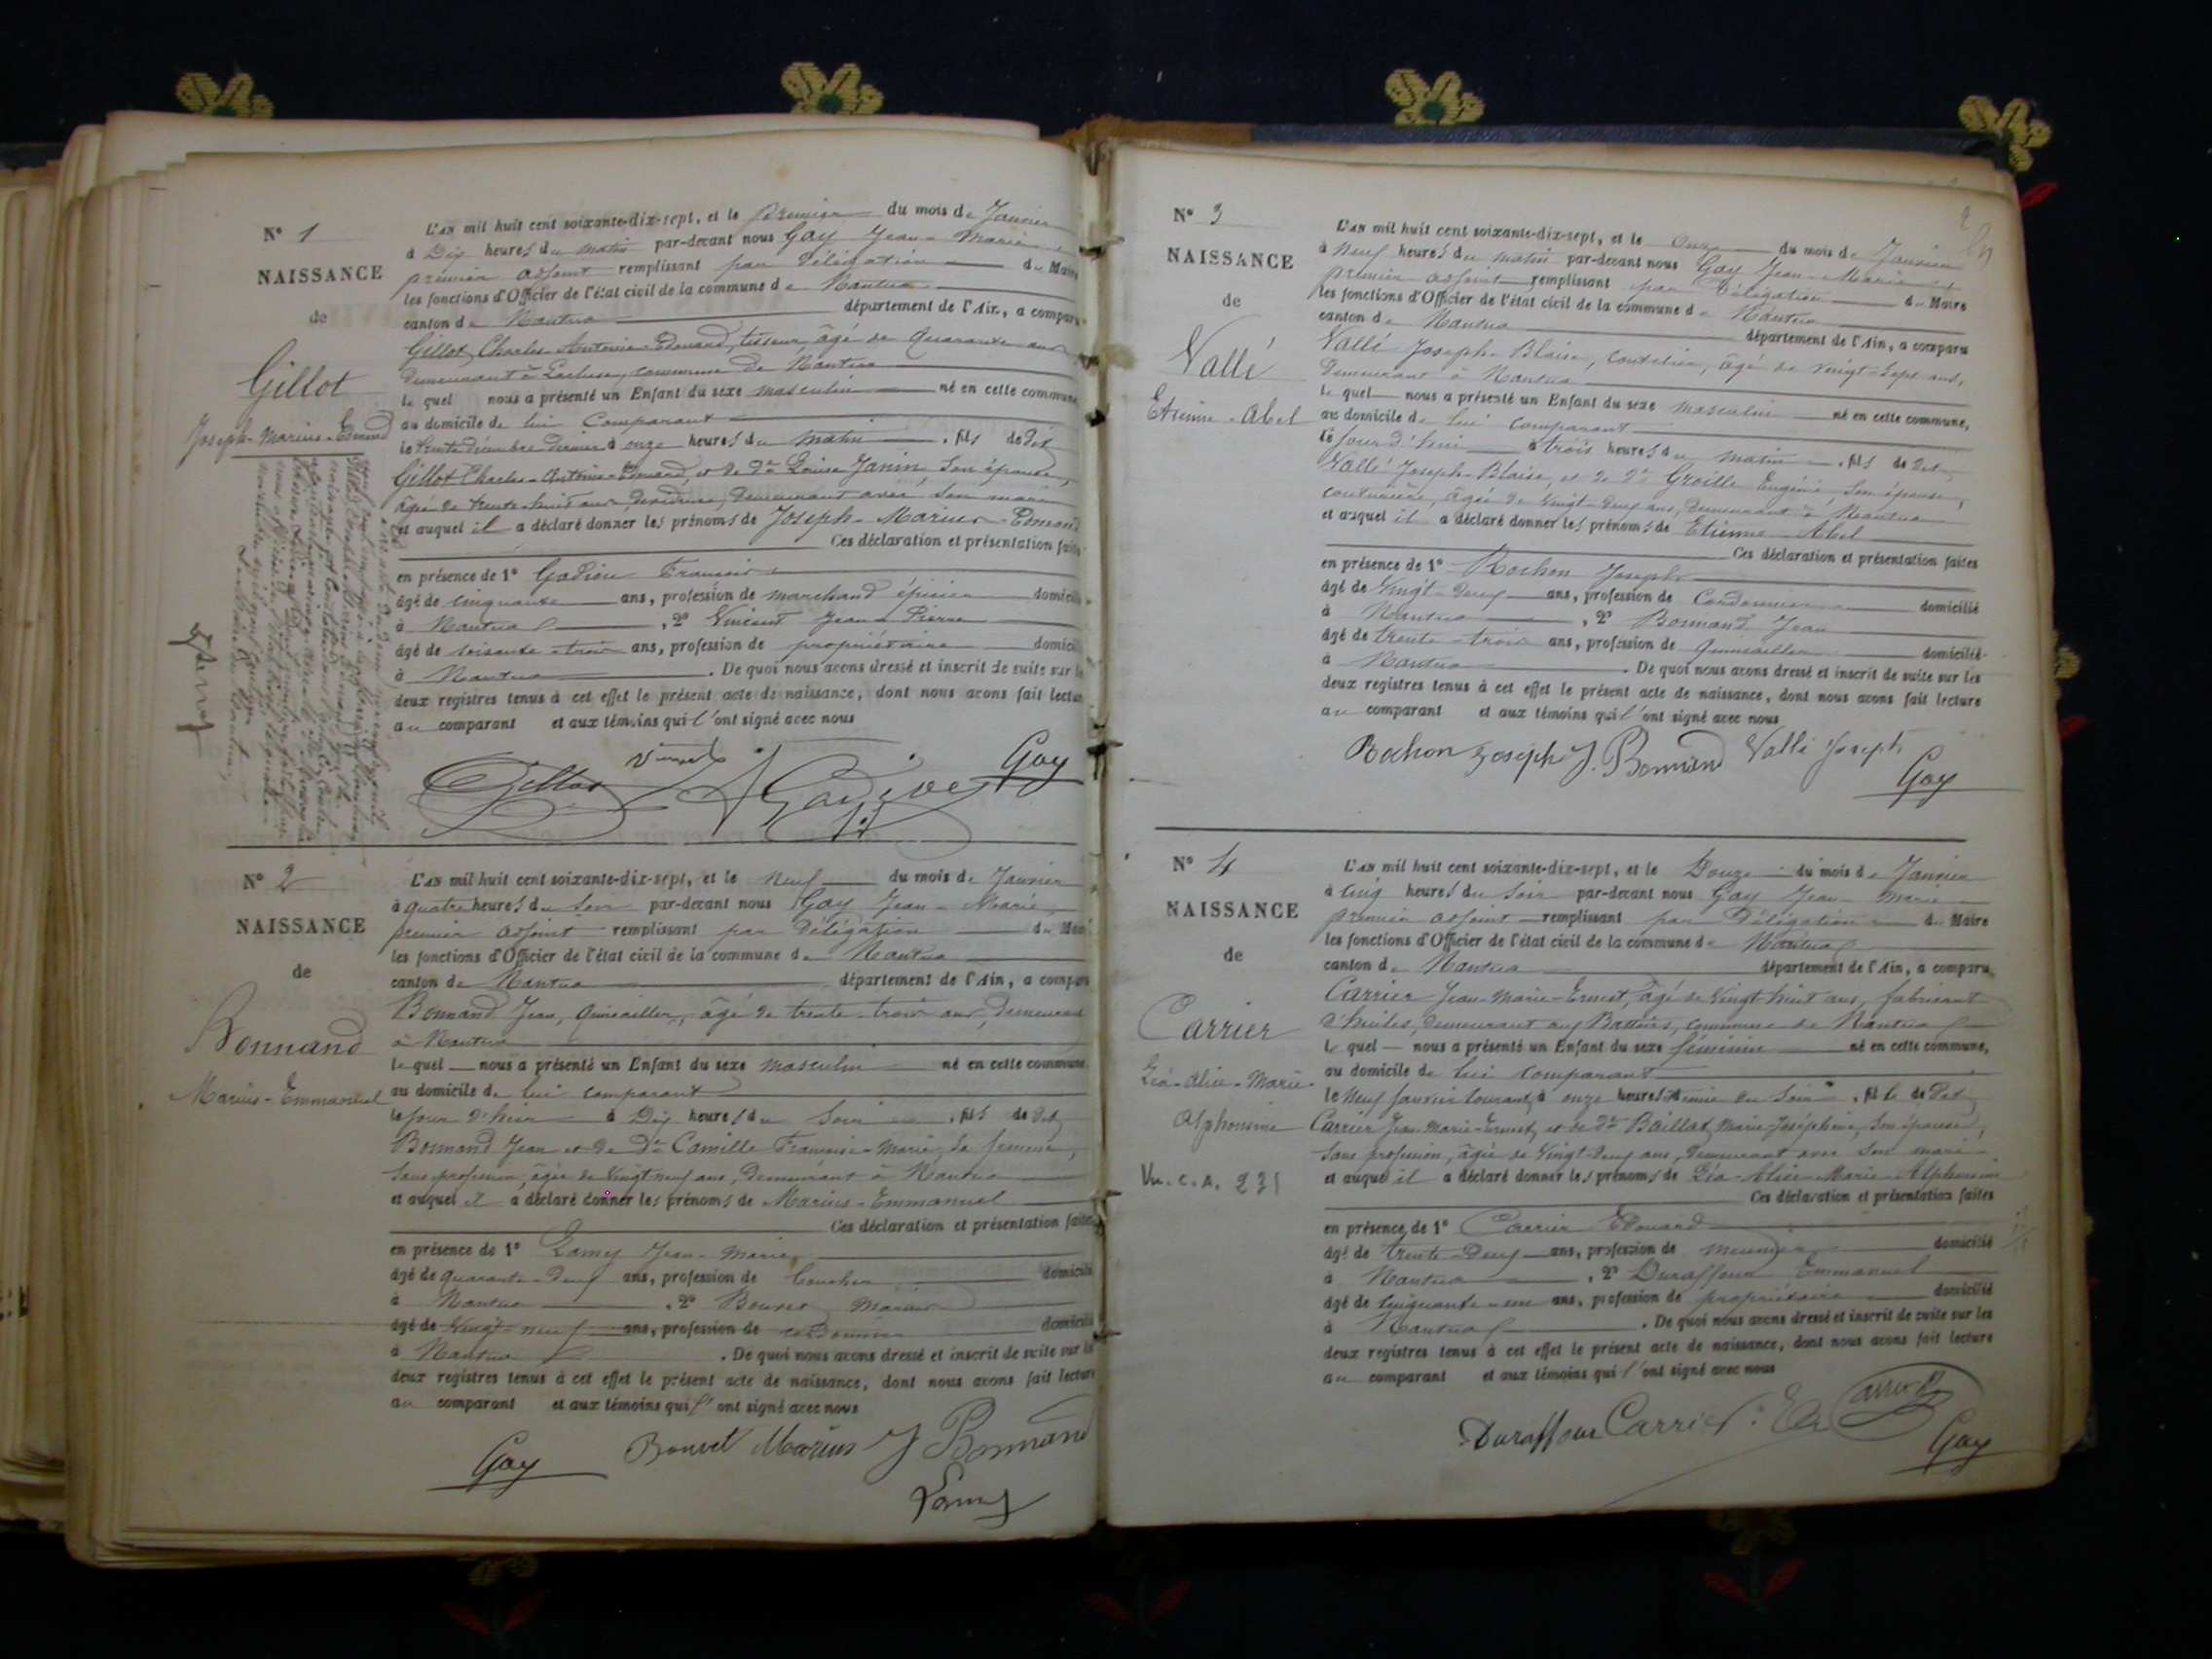 N° 1
NAISSANCE
de
Gillot
Joseph-Marius-Edmond
L'AN mil huit cent soixante-dix-sept, et le Premier du mois de Janvier
à Dix heures du matin par-devant nous Gay Jean-Marie,
premier adjoint remplissant par délégation du Maire
les fonctions d'Officier de l'état civil de la commune de Nantua
canton de Nantua département de l'Ain, a comparu
Gillot, Charles-Antoine-Edouard, tisseur, âgé de quarante ans
demeurant à Lacluse, commune de Nantua
le quel nous a présenté un Enfant du sexe masculin né en cette commune
au domicile de lui Comparant
le trente décembre dernier à onze heures du matin, fils de dit
Gillot Charles-Antoine-Edouard, et de De Louise Janin, son épouse,
âgée de trente-huit ans, demeurant avec son mari
et auquel il a déclaré donner les prénoms de Joseph-Marius-Edmond
Ces déclaration et présentation faites
en présence de 1° Godieu François
âgé de cinquante ans, profession de marchand épicier domicilié
à Nantua, 2° Vincent Jean-Pierre
âgé de soixante-trois ans, profession de propriétaire domicilié
à Nantua. De quoi nous avons dressé et inscrit de suite sur les
deux registres tenus à cet effet le présent acte de naissance, dont nous avons fait lecture
au comparant et aux témoins qui l'ont signé avec nous
Gillot Gay
N° 2
NAISSANCE
de
Bonnand
Marius-Emmanuel
L'AN mil huit cent soixante-dix-sept, et le neuf du mois de Janvier
à quatre heures du soir par-devant nous Gay Jean-Marie,
premier adjoint remplissant par délégation du Maire
les fonctions d'Officier de l'état civil de la commune de Nantua
canton de Nantua département de l'Ain, a comparu
Bonnand Jean, quincailler, âgé de trente-trois ans, demeurant
à Nantua
le quel nous a présenté un Enfant du sexe masculin né en cette commune
au domicile de lui comparant
le jour d'hier à Dix heures du soir, fils de dit
Bonnand Jean et de De Camille Françoise-Marie, sa femme,
sans profession, âgée de vingt-neuf ans, demeurant à Nantua
et auquel il a déclaré donner les prénoms de Marius-Emmanuel
Ces déclaration et présentation faites
en présence de 1° Lamy Jean-Marie,
âgé de quarante-deux ans, profession de boucher domicilié
à Nantua, 2° Bouvet Marius
âgé de vingt-neuf ans, profession de cordonnier domicilié
à Nantua. De quoi nous avons dressé et inscrit de suite sur les
deux registres tenus à cet effet le présent acte de naissance, dont nous avons fait lecture
au comparant et aux témoins qui l'ont signé avec nous
Gay Bouvet Marius J Bonnand
Lamy
N° 3
NAISSANCE
de
Vallé
Etienne-Abel
L'AN mil huit cent soixante-dix-sept, et le Onze du mois de Janvier
à neuf heures du matin par-devant nous Gay Jean-Marie,
premier adjoint remplissant par délégation du Maire
les fonctions d'Officier de l'état civil de la commune de Nantua
canton de Nantua département de l'Ain, a comparu
Vallé Joseph-Blaise, coutelier, âgé de vingt-sept ans,
demeurant à Nantua
le quel nous a présenté un Enfant du sexe masculin né en cette commune,
au domicile de lui comparant
le jour d'hui à trois heures du matin, fils de dit
Vallé Joseph-Blaise, et de De Groille Eugénie, son épouse,
couturière, âgée de vingt-deux ans, demeurant à Nantua
et auquel il a déclaré donner les prénoms de Etienne-Abel
Ces déclaration et présentation faites
en présence de 1° Rochon Joseph
âgé de vingt-deux ans, profession de Cordonnier domicilié
à Nantua, 2° Bonnand Jean
âgé de trente-trois ans, profession de quincailler domicilié
à Nantua. De quoi nous avons dressé et inscrit de suite sur les
deux registres tenus à cet effet le présent acte de naissance, dont nous avons fait lecture
au comparant et aux témoins qui l'ont signé avec nous
Rochon Joseph J. Bonnand Vallé Joseph
Gay
N° 4
NAISSANCE
de
Carrier
Léa-Alice-Marie-
Alphonsine
Vu. C. A. 231
L'AN mil huit cent soixante-dix-sept, et le Douze du mois de Janvier
à cinq heures du soir par-devant nous Gay Jean-Marie
premier adjoint remplissant par délégation du Maire
les fonctions d'Officier de l'état civil de la commune de Nantua
canton de Nantua département de l'Ain, a comparu
Carrier Jean-Marie-Ernest, âgé de vingt-huit ans, fabricant
d'huiles, demeurant aux Battoirs, commune de Nantua
le quel nous a présenté un Enfant du sexe féminin né en cette commune,
au domicile de lui comparant
le neuf janvier courant, à onze heures et demie du soir, fille de dit
Carrier Jean-Marie-Ernest, et de De Baillat Marie-Joséphine, son épouse,
sans profession, âgée de vingt-deux ans, demeurant avec son mari
et auquel il a déclaré donner les prénoms de Léa-Alice-Marie-Alphonsine
Ces déclaration et présentation faites
en présence de 1° Carrier Edouard
âgé de trente-deux ans, profession de meunier domicilié
à Nantua, 2° Duraffour Emmanuel
âgé de cinquante-un ans, profession de propriétaire domicilié
à Nantua. De quoi nous avons dressé et inscrit de suite sur les
deux registres tenus à cet effet le présent acte de naissance, dont nous avons fait lecture
au comparant et aux témoins qui l'ont signé avec nous
Duraffour Carrier Er Carrier
Gay